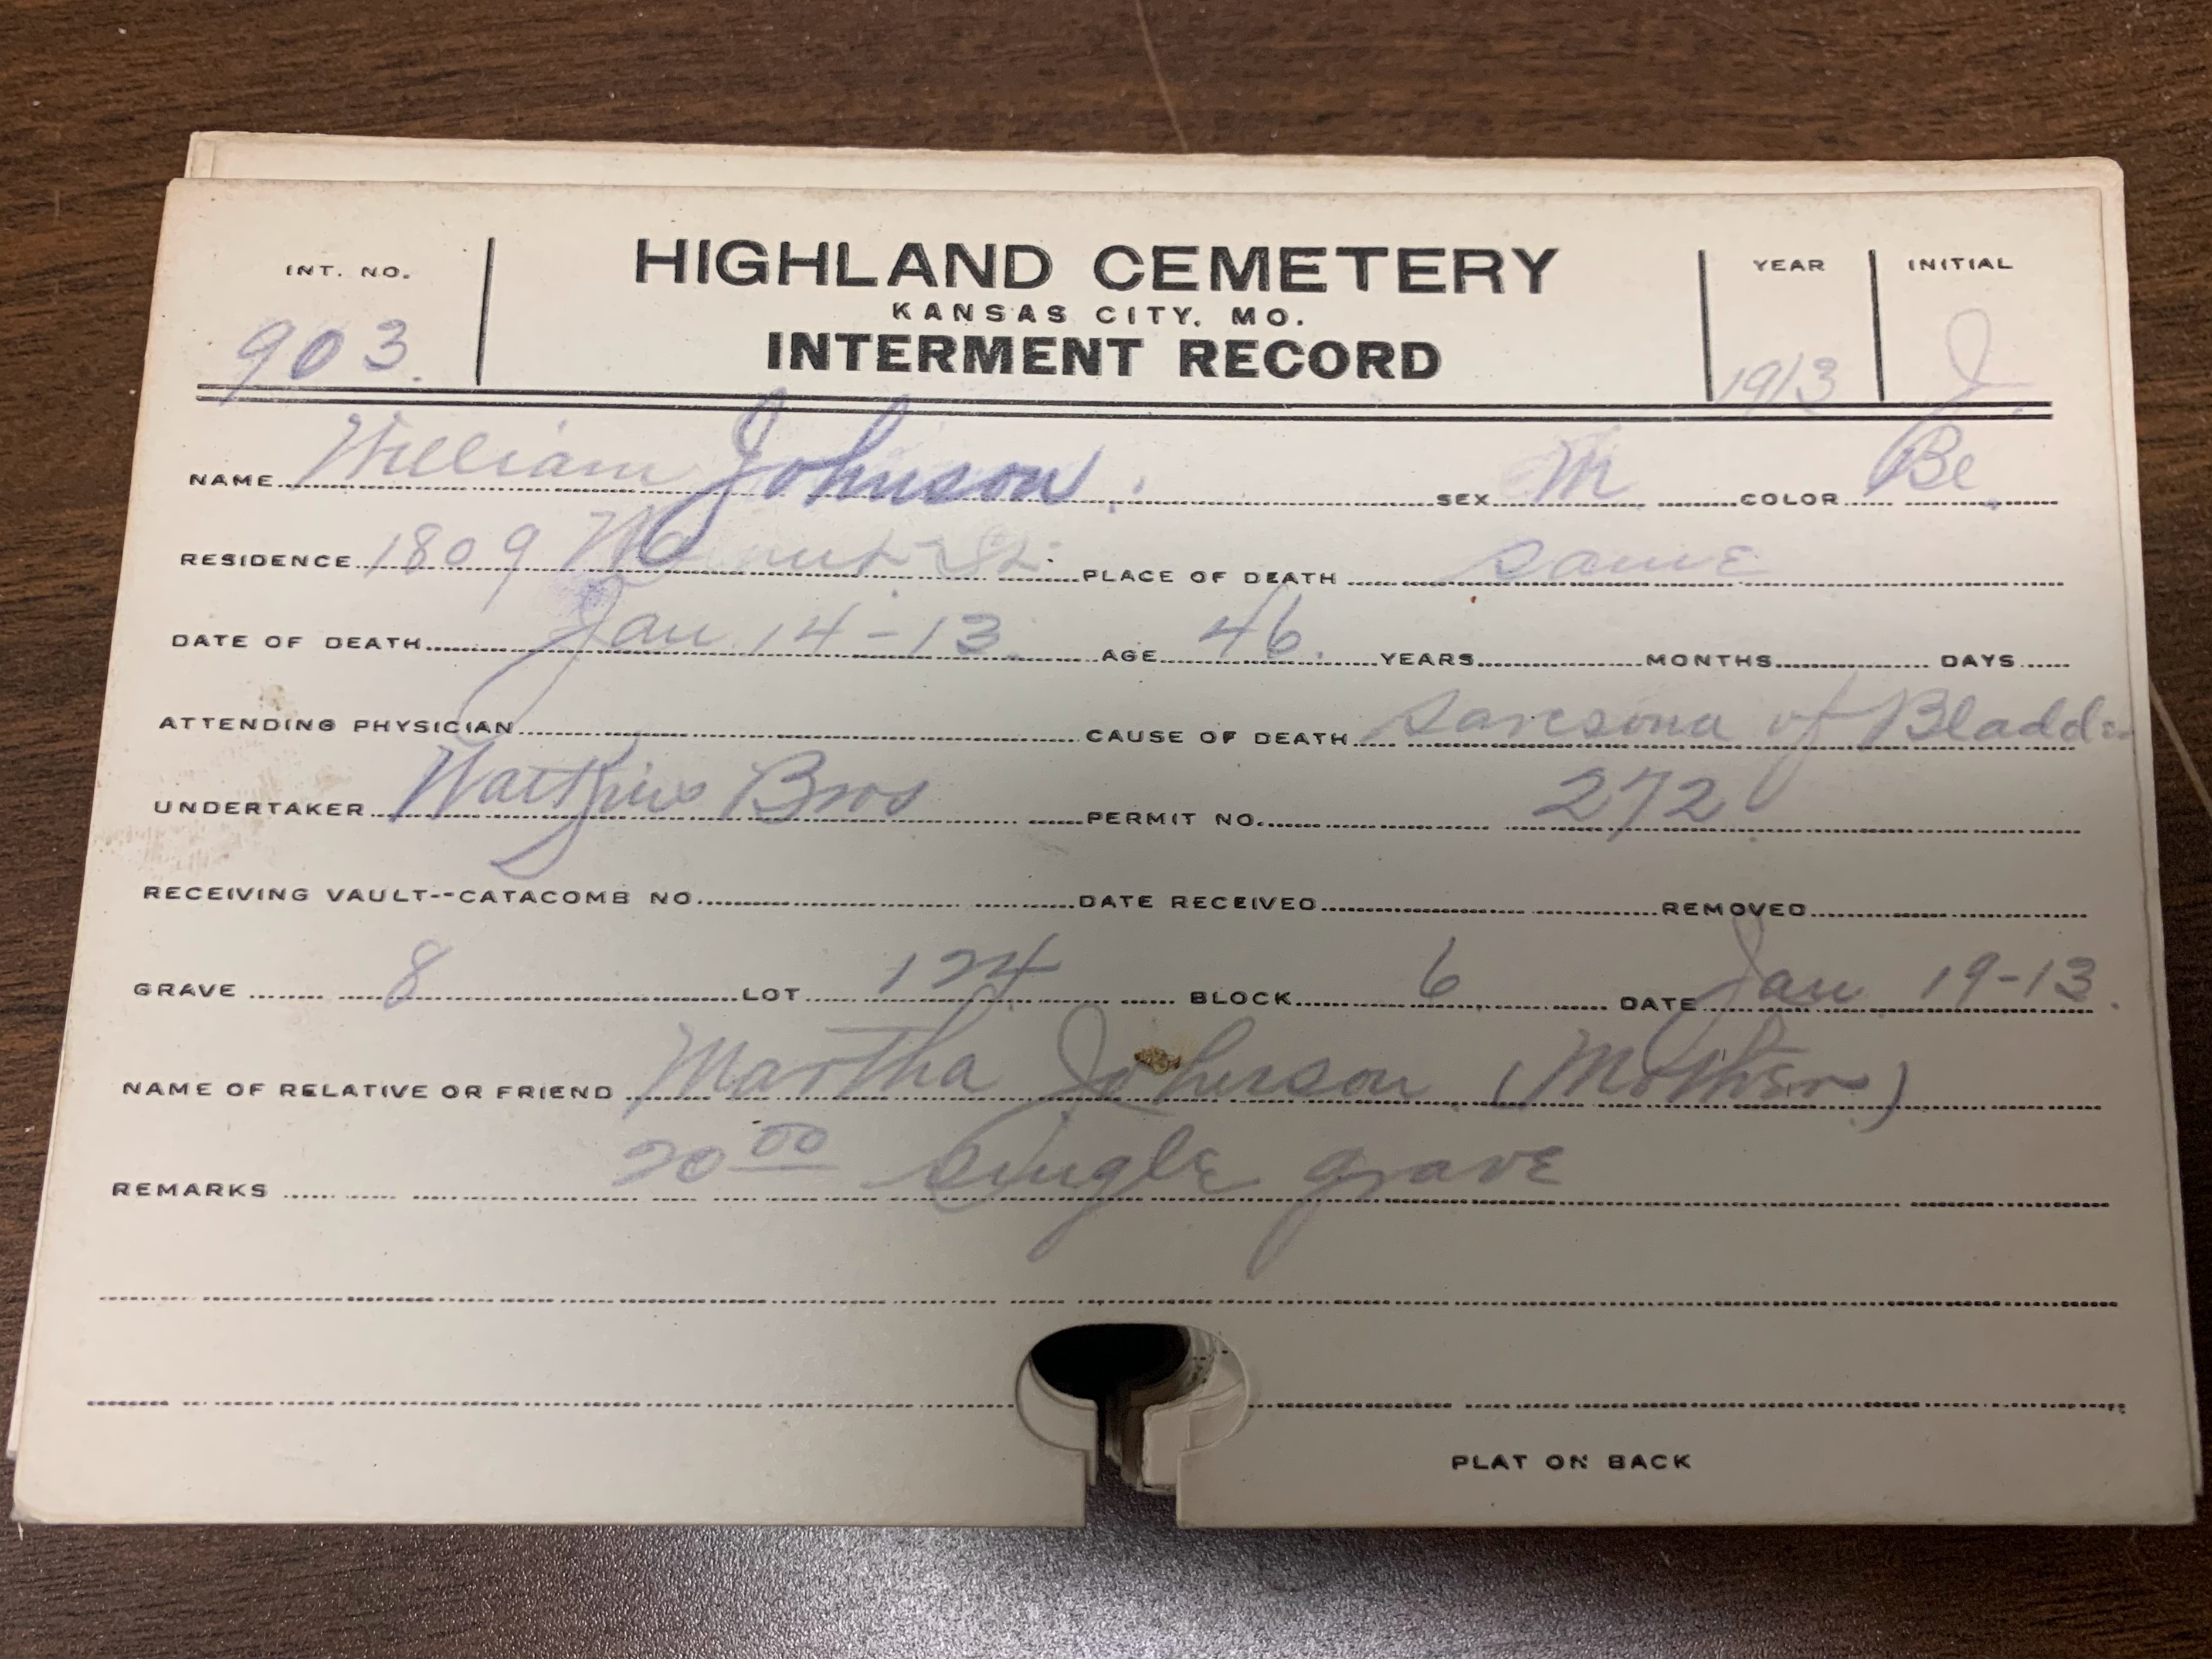 INT. NO. HIGHLAND CEMETERY YEAR INITIAL
KANSAS CITY, MO.
903. INTERMENT RECORD 1913 J.
NAME William Johnson. SEX M COLOR Be.
RESIDENCE 1809 St. PLACE OF DEATH same
DATE OF DEATH Jan 14-13. AGE 46. YEARS MONTHS DAYS
ATTENDING PHYSICIAN CAUSE OF DEATH Sarcsoma of Bladder
UNDERTAKER Watkins Bros PERMIT NO. 272
RECEIVING VAULT--CATACOMB NO. DATE RECEIVED REMOVED
GRAVE 8 LOT 124 BLOCK 6 DATE Jan 19-13.
NAME OF RELATIVE OR FRIEND Martha Johnson. (Mother)
REMARKS 20 00 single grave
PLAT ON BACK